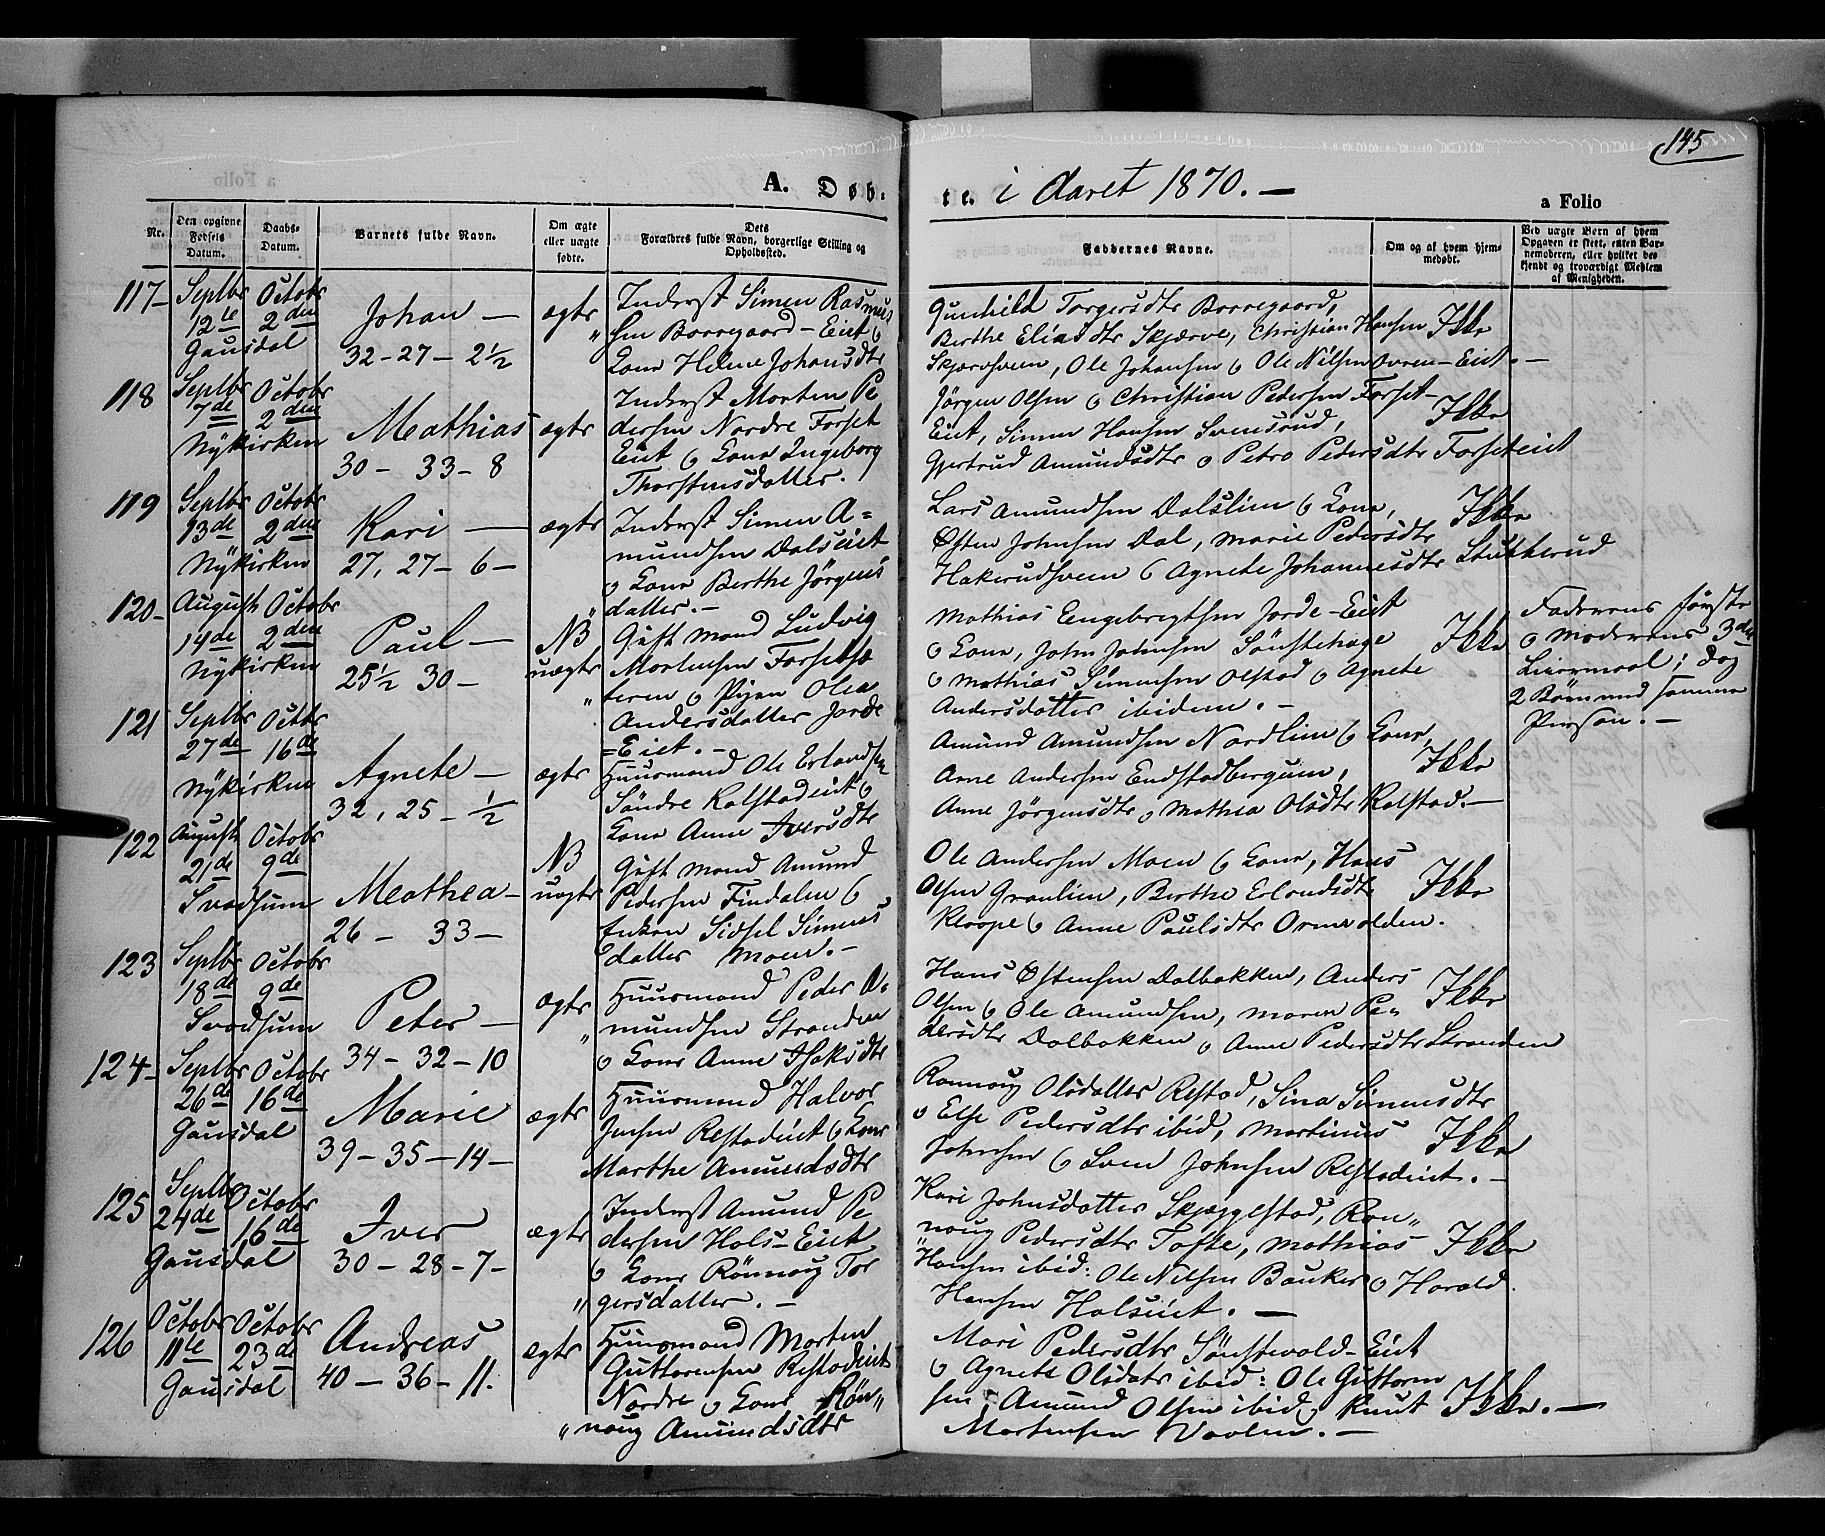 145
A. Døb-
te. i Aaret 1870. —
a Folio
Nr.
Den opgivne Fødsels Datum.
Daabs-Datum.
Barnets fulde Navn.
Om ægte eller uægte fødte.
Dets Forældres fulde Navn, borgerlige Stilling og Opholdssted.
Faddernes Navne.
Om og af hvem hjemmedøbt.
Ved uægte Børn af hvem Opgaven er skeet, enten Barnemoderen, eller hvilket bekjendt og troværdigt Medlem af Menigheden.
117- Septbr 12te Octobr 2den Gausdal
Johan —
32-27-2½
ægte
Inderst Simen Rasmus
sen Borregaard-Eiet &
Kone Helene Johansdtr
Gunhild Torgersdtr Borregaard,
Berthe Eliasdtr Skjærve, Christian Hansen
Skjærvsveen, Ole Johansen & Ole Nilsen Svren-Eiet. —
Ikke
118 Septbr 7de Octobr 2den Nÿkirken
Mathias
30 - 33 - 8
ægte
Inderst Morten Pe
dersen Nordre Forset
Eiet & Kone Ingeborg
Thorstensdatter.
Jörgen Olsen & Christian Pedersen Forset-
Eiet, Simen Hansen Svensrud,
Gjertrud Amundsdtr & Petra Pedersdtr Forseteiet
Ikke
119 Septbr 13de Octobr 2den Nÿkirken
Kari —
27, 27-6-
ægte
Inderst Simen A=
mundsen Dalseiet
& Kone Berthe Jörgens
datter. -
Lars Amundsen Dalslien & Kone,
Østen Johnsen Dal, Marie Pedersdtr
Hakerudsveen & Agnete Johannesdtr Stubberud
Ikke
120- August 14de Octobr 2den Nÿkirken
Paul —
25½ 30-
NB
uægte
Gift Mand Ludvig
Mortensen Forsetsæ
teren & Pigen Olea
Andersdatter Jorde
=Eiet. -
Mathias Engebregtsen Jorde-Eiet
& Kone, John Johnsen Sönstehage
& Mathias Simensen Olstad & Agnete
Andersdatter ibidem. -
Ikke
Faderens förste
& Moderens 3die
Leiermaal; dog
2 Börn med samme
Person. -
121 Septbr 27de Octbr 16de Nÿkirken
Agnete —
32, 25 - ½
ægte
Huusmand Ole Erlandsen
Söndre Kalstadeiet &
Kone Anne Iversdtr
Amund Amundsen Nordlien & Kone,
Arne Andersen Endstadbergum,
Anne Jörgensdtr & Mathea Olsdtr Kalstad. —
Ikke
122 August 21de Octobr 9de Svadsum
Mathea-
26 - 33 -
NB
uægte
Gift Mand Amund
Pedersen Findalen &
Enken Sidsel Simens
datter Moen. -
Ole Andersen Moen & Kone, Hans
Olsen Granlien, Berthe Erlandsdtr
Kloope & Anne Paulsdtr Ormvolden.
Ikke
123 Septbr 18de Octobr 9de Svadsum
Peter —
34 - 32 - 10
ægte
Huusmand Peder A-
mundsen Stranden
& Kone Anne Isaksdtr
Hans Østensen Dalbakken, Anders
Olsen & Ole Amundsen, Maren Pe-
dersdtr Dalbakken & Anne Pedersdtr Stranden
Ikke
124- Septbr 26de Octobr 16de Gausdal
Marie
39 - 35 - 14 -
ægte
Huusmand Halvor
Jensen Relstadeiet & Kone
Marthe Amundsdtr
Ronnoug Olsdatter Relstad, Sina Simensdtr
& Else Pedersdtr ibid, Martinus
Johnsen & Sven Johnsen Relstadeiet. -
Ikke
125 Septbr 24de Octobr 16de Gausdal
Iver
30 - 28 - 7 -
ægte
Inderst Amund Pe
dersen Hols-Eiet
& Kone Rönnoug Tor
gersdatter. -
Kari Johnsdatter Skjæggestad, Ron-
noug Pedersdtr Tofte, Mathias
Hansen ibid: Ole Nilsen Bauker & Harald
Hansen Holseiet. —
Ikke
126 Octobr 11te Octobr 23de Gausdal
Andreas
40 - 36 - 11.
ægte
Huusmand Morten
Guttormsen Relstadeiet
Nordre & Kone Rön„
noug Amundsdtr
Mari Pedersdtr Sönstevold-Eiet
& Agnete Olsdatr ibid: Ole Guttorm
sen Amund Olsen ibid & Knut
Mortensen Voolen. -
Ikke. —